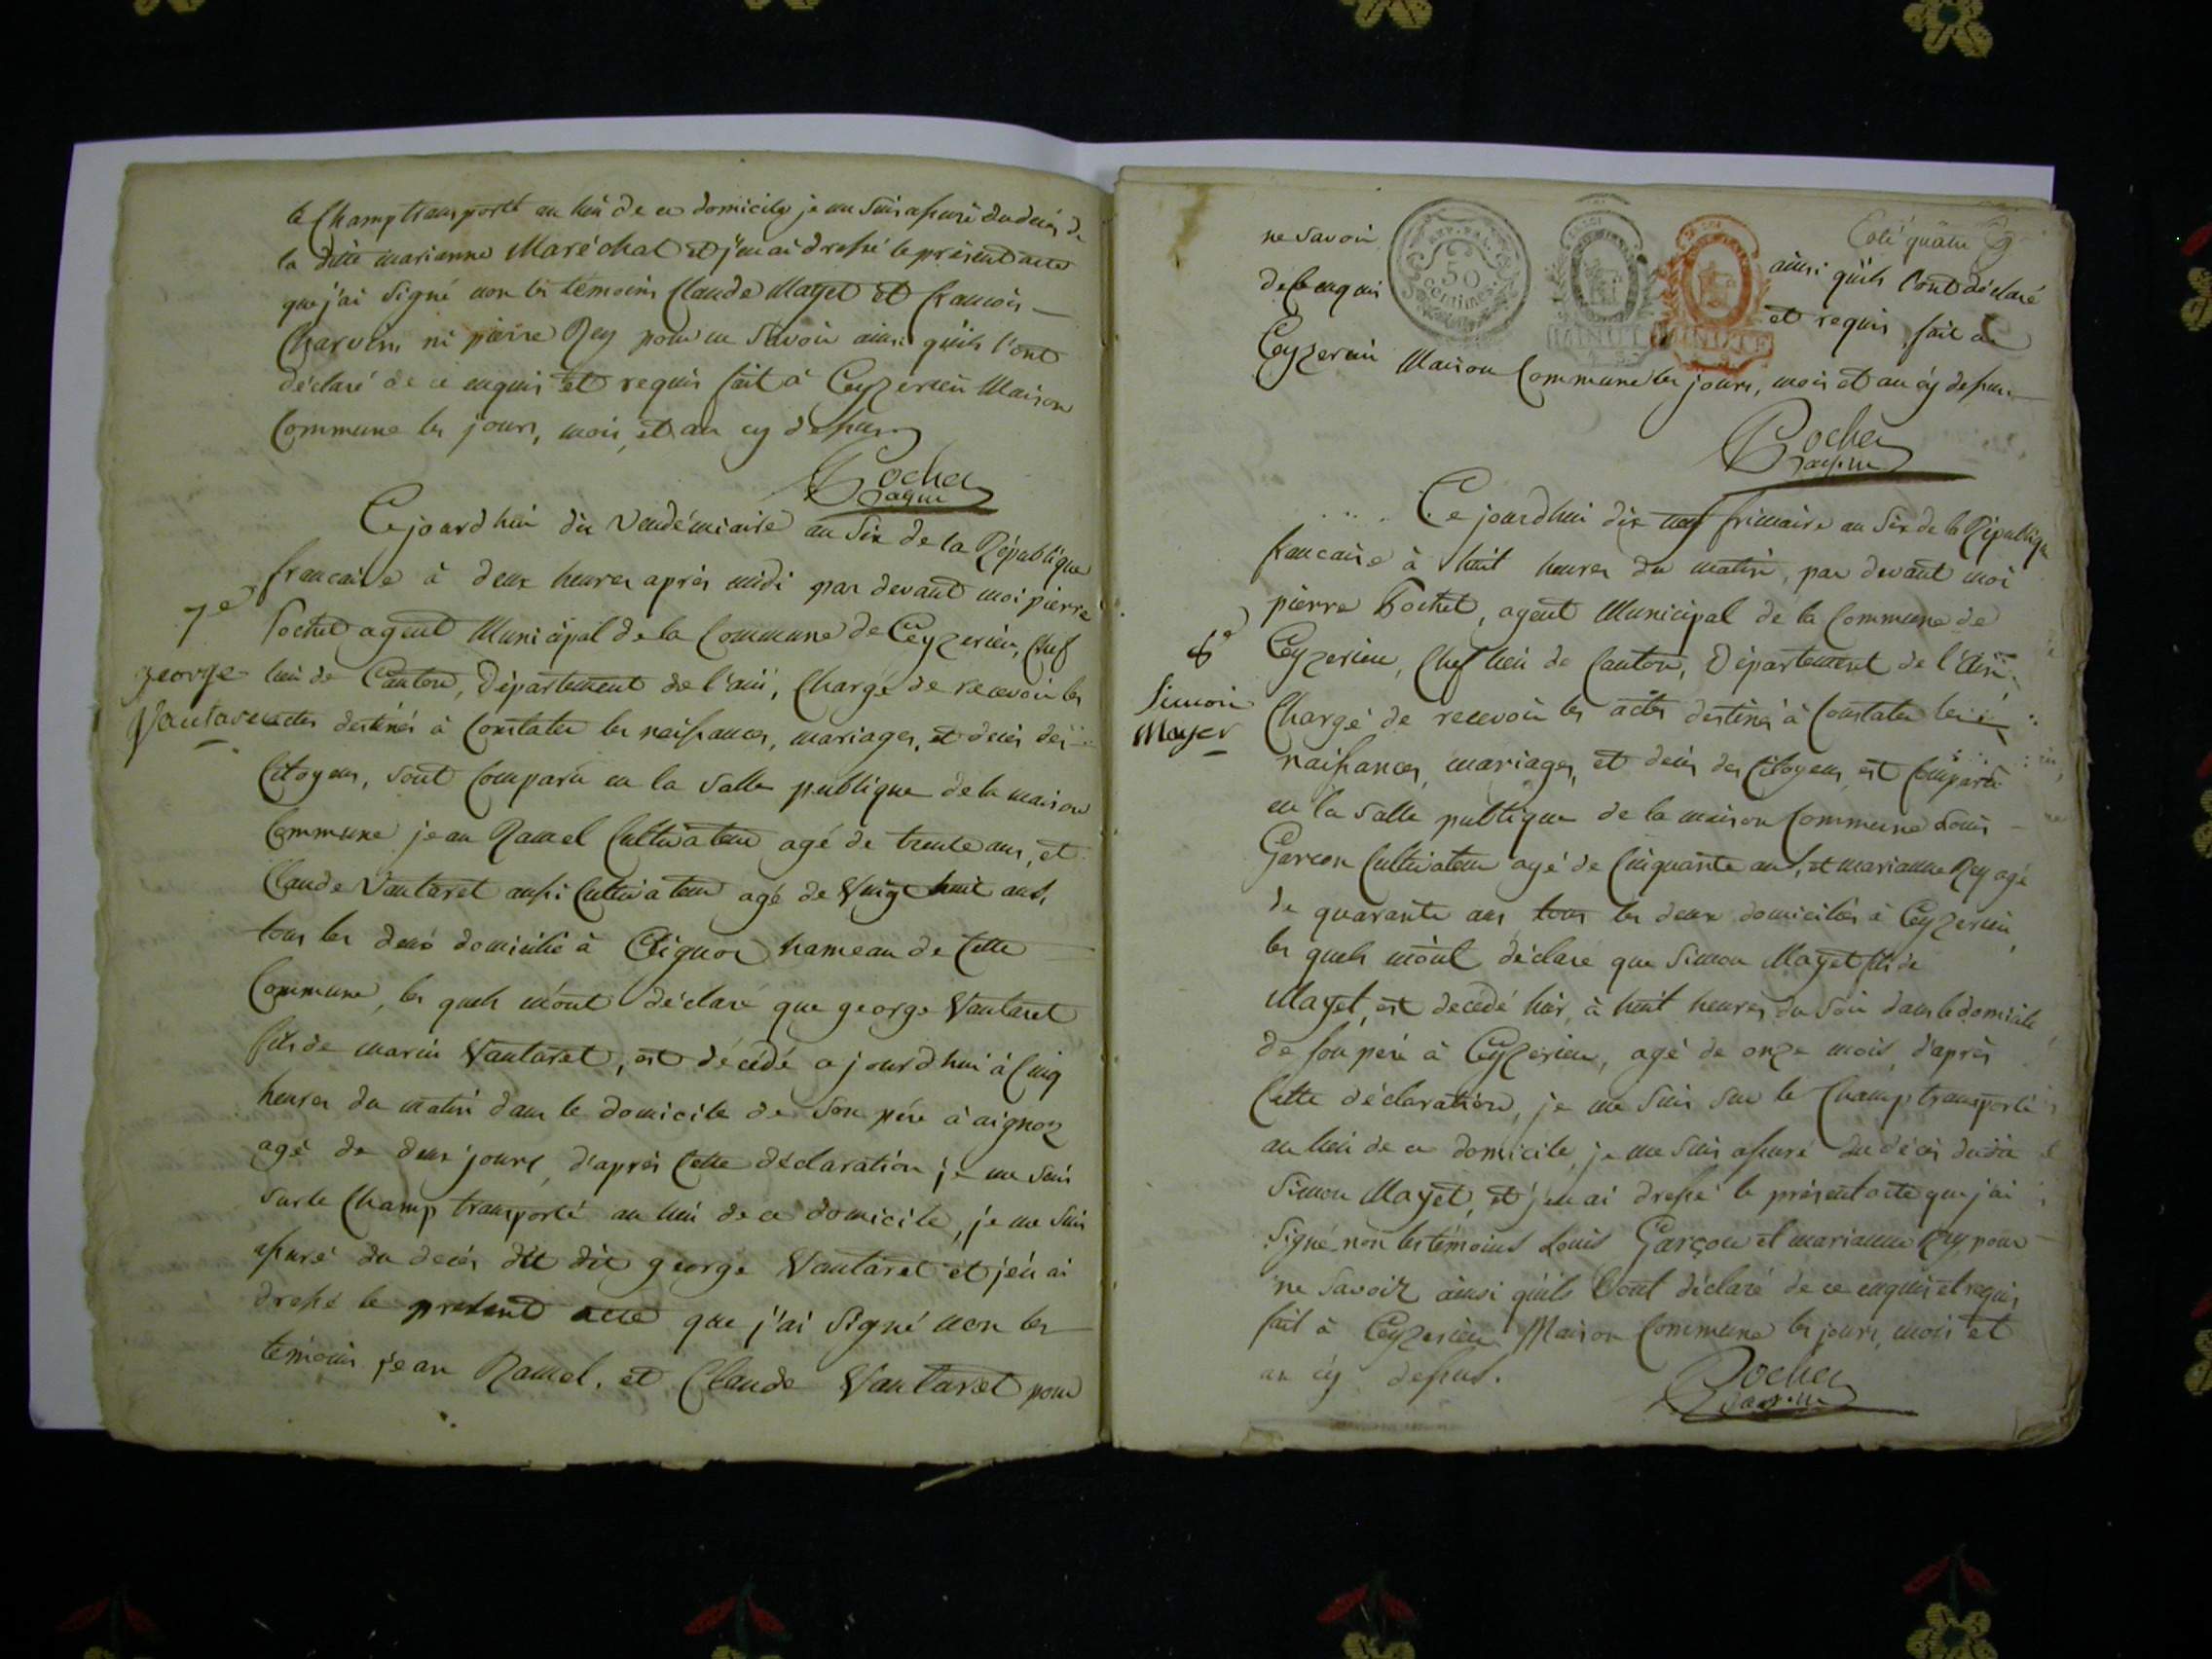 le Champ transporté au lieu de ce domicile je me suis assuré du décés de
la ditte marianne Maréchal et j'en ai dressé le présent acte
que j'ai signé non les témoins Claude Mayet et francois
Charvin, ni pierre Rey pour ne savoir ainsi qu'ils l'ont
déclaré de ce enquis et requis fait à Ceyzerieu Maison
Commune les jours, mois, et an cy dessus
Bochet
agent
Cejourd'hui dix Vendémiaire an six de la République
francaise à deux heures après midi par devant moi pierre
7e
Bochet agent Municipal de la Commune de Ceyzerieu, Chef
george
lieu de Canton, Département de l'ain, Chargé de recevoir les
Vautaret
actes destinés à Constater les naissances, mariages, et decés des
Citoyens, sont Comparu en la Salle publique de la maison
Commune jean Ramel Cultivateur agé de trente ans, et
Claude Vautaret aussi Cultivateur agé de Vingt huit ans,
tous les deux domicilié à Aignoz hameau de Cette
Commune, les quels m'ont déclaré que george Vautaret
fils de marin Vautaret, est décédé ajourd'hui à Cinq
heures du matin dans le domicile de Son père à aignoz
agé de deux jours, d'après Cette déclaration je me suis
sur le Champ transporté au lieu de ce domicile, je me suis
assuré du decés du dit george Vautaret et j'en ai
dressé le present acte que j'ai signé non les
témoins jean Ramel, et Claude Vautaret pour
Coté quatre
REP. FRA.
50
centimes
MINUTE
MINUTE
ne savoir ainsi qu'ils l'ont déclaré
de ce enquis et requis, fait à
Ceyzerieu Maison Commune les jours, mois et an cy dessus
Bochet
agent
Cejourd'hui dix neuf frimaire an six de la République
francaise à huit heures du matin, par devant moi
pierre Bochet, agent Municipal de la Commune de
8e
Ceyzerieu, Chef lieu de Canton, Département de l'Ain,
Simon
Mayet
Chargé de recevoir les actes destinés à Constater les
naissances, mariages, et decés des Citoyens, est Comparu
en la Salle publique de la maison Commune Louis
Garcon Cultivateur agé de Cinquante ans, et marianne Rey agé
de quarante ans tous les deux domiciliés à Ceyzerieu,
les quels m'ont déclaré que Simon Mayet fils de
Mayet, est decédé hier, à huit heures du soir dans le domicile
de son père à Ceyzerieu, agé de onze mois, d'après
Cette déclaration, je me suis sur le Champ transporté
au lieu de ce domicile, je me suis assuré du décés dudit
Simon Mayet, et j'en ai dressé le présent acte que j'ai
signé non les témoins Louis Garçon et marianne Rey pour
ne savoir ainsi qu'ils l'ont déclaré de ce enquis et requis
fait à Ceyzerieu Maison Commune les jours, mois et
an cy dessus.
Bochet
agent